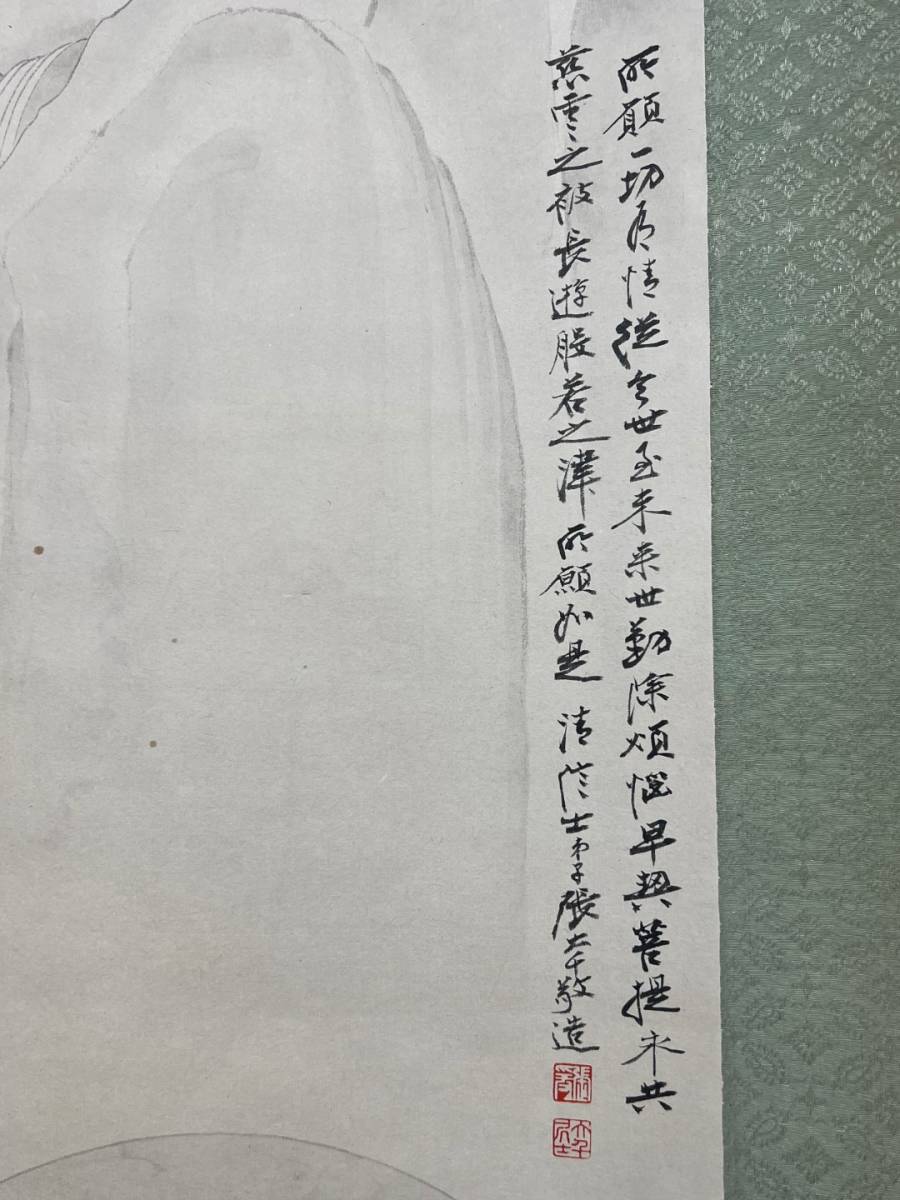 所願一切有情從今世至未來世勤除煩惱早契菩提永共
慈雲之被長遊般若之津所願如是 清信士弟子張大千敬造
張爰
大千居士